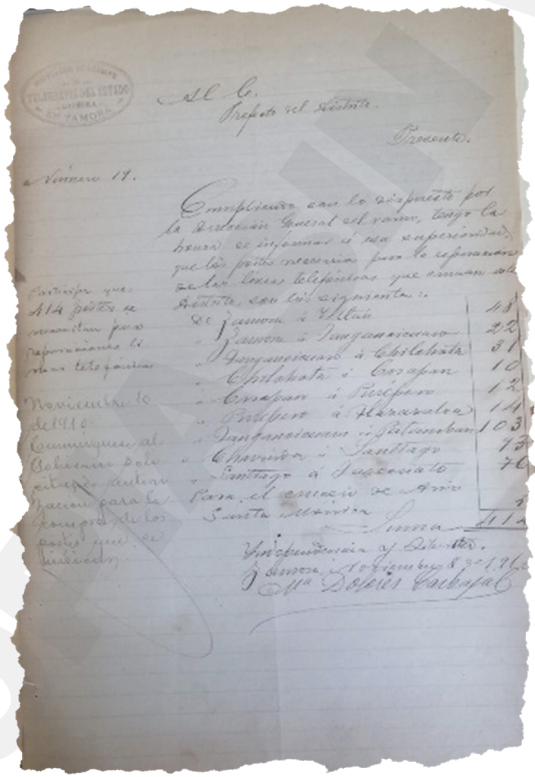 TELEGRAFOS DEL ESTADO
ZAMORA
Al C.
Prefecto del Distrito.
Presente.
Número 19.
Cumpliendo con lo dispuesto por
la Dirección General del ramo, tengo la
honra de informar á esa superioridad,
que los postes necesarios para la reparación
de las líneas telefónicas que cruzan este
Distrito, son los siguientes:
De Zamora á 48
" Zamora á Tangancicuaro 22
" Tangancicuaro á Chilchota 31
" Chilchota á Carapan 10
" Carapan á Purépero 12
" Purépero á 14
" Tangancicuaro á Patamban 103
" Chavinda á Santiago
" Santiago á
Para el de
Santa Mónica
Suma 414
Independencia y
Zamora, Noviembre 8 de
Ma. Dolores Carbajal
Participa que
414 postes se
necesitan para
reparaciones lí
neas telefónicas
Noviembre 10
de 1910.
Comuníquese al
Gobierno soli
citando autori
zación para la
compra de los
postes que se